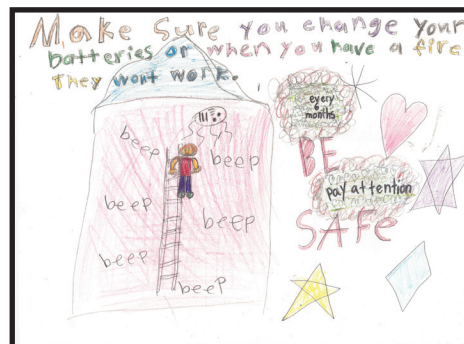 Make Sure you change your
batteries or when you have a fire
They wont work.
every
6
months
beep
beep
BE
pay attention
beep
beep
SAFE
beep
beep